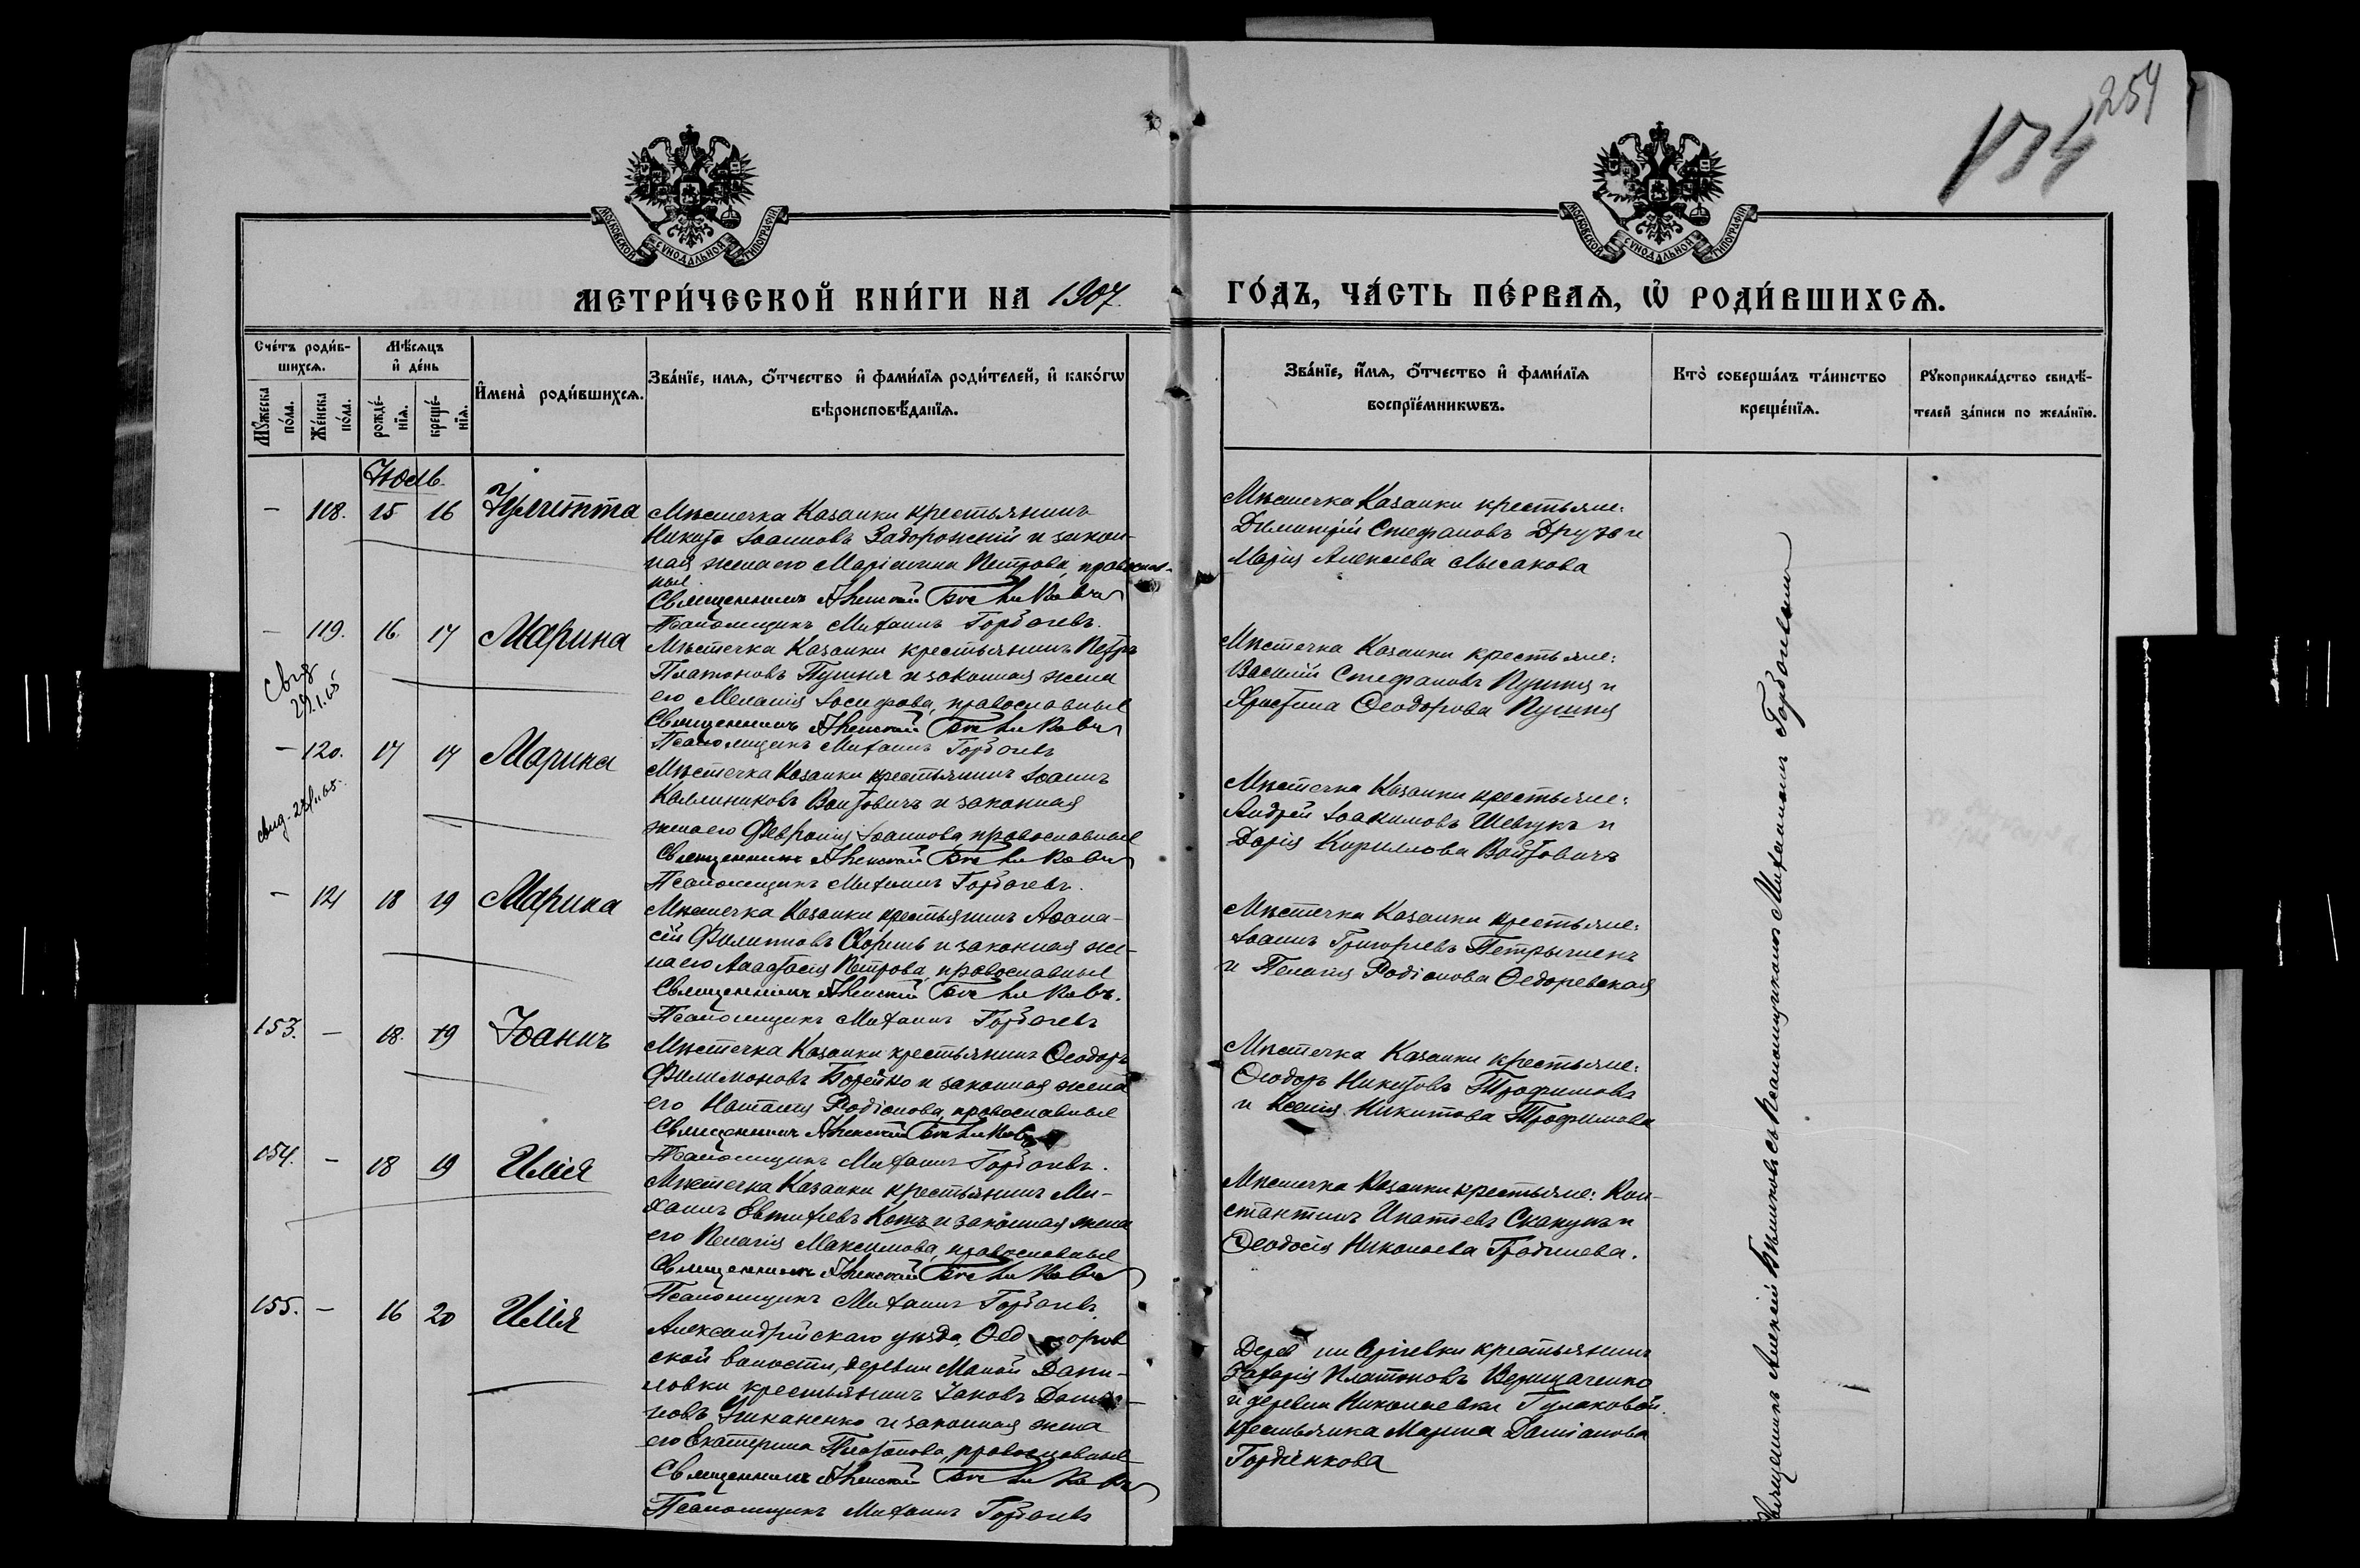 254
134
МОСКОВСКОЙ СѴНОДАЛЬНОЙ ТИПОГРАФІИ
МОСКОВСКОЙ СѴНОДАЛЬНОЙ ТИПОГРАФІИ
МЕТРИ́ЧЕСКОЙ КНИ́ГИ НА 1907.
ГО́ДЪ, ЧА́СТЬ ПЕ́РВАѦ, Ѡ҆ РОДИ́ВШИХСѦ.
Сче́тъ роди́в-
шихсѧ.
Мꙋжеска по́ла.
Же́нска по́ла.
Мѣ́сѧцъ
и҆ де́нь
рожде́-
нїѧ.
креще́-
нїѧ.
И҆мена̀ роди́вшихсѧ.
Зва́нїе, имѧ, ѻ҆́тчество и҆ фами́лїѧ роди́телей, и҆ како́гѡ
вѣроисповѣ́данїѧ.
Зва́нїе, и҆́мѧ, ѻ҆́тчество и҆ фами́лїѧ
воспрїе́мникѡвъ.
Кто̀ соверша́лъ та́инство
креще́нїѧ.
Рꙋкоприкла́дство свидѣ́-
телей за́писи по жела́нїю.
Іюль
– 118. 15 16 Іулитта
Мѣстечка Казанки крестьянинъ
Никита Іоанновъ Задорожній и закон-
ная жена его Маріанна Петрова, православ-
ные.
Священникъ Алексій Бѣликовъ
Псаломщикъ Михаилъ Горбачевъ.
Мѣстечка Казанки крестьяне:
Димитрій Стефановъ Друзь и
Марія Алексіева Лысакова
– 119. 16. 17 Марина
Свид
29.1.65
Мѣстечка Казанки крестьянинъ Петръ
Платоновъ Пушня и законная жена
его Меланія Іосифова, православные
Священникъ Алексій Бѣликовъ
Псаломщикъ Михаилъ Горбачевъ
Мѣстечка Казанки крестьяне:
Василій Стефановъ Пушня и
Христина Ѳеодорова Пушня
– 120. 17 17 Марина
свид.
Мѣстечка Казанки крестьянинъ Іоаннъ
Каллиниковъ Войтовичъ и законная
жена его Февронія Іоаннова, православные
Священникъ Алексій Бѣликовъ
Псаломщикъ Михаилъ Горбачевъ.
Мѣстечка Казанки крестьяне:
Андрей Іоакимовъ Шевчукъ и
Дарія Кириллова Войтовичъ
– 121 18 19 Марина
Мѣстечка Казанки крестьянинъ Аѳана-
сій Филипповъ и законная же-
на его Анастасія Петрова, православные
Священникъ Алексій Бѣликовъ.
Псаломщикъ Михаилъ Горбачевъ
Мѣстечка Казанки крестьяне:
Іоаннъ Григорьевъ
и Пелагія Родіонова Ѳедоревская
153. – 18. 19 Іоаннъ
Мѣстечка Казанки крестьянинъ Ѳеодоръ
Филимоновъ Борейко и законная жена
его Наталія Родіонова, православные
Священникъ Алексій Бѣликовъ
Псаломщикъ Михаилъ Горбачевъ.
Мѣстечка Казанки крестьяне:
Ѳеодоръ Никитовъ Трофимовъ
и Ксенія Никитова Трофимова
154. – 18 19 Илія
Мѣстечка Казанки крестьянинъ Ми-
хаилъ Евтихіевъ Котъ и законная жена
его Пелагія Максимова, православные
Священникъ Алексій Бѣликовъ
Псаломщикъ Михаилъ Горбачевъ
Мѣстечка Казанки крестьяне: Кон-
стантинъ Ипатіевъ Скакунъ и
Ѳеодосія Николаева
155. – 16 20 Илія
Александрійскаго уѣзда, Ѳедоров
ской волости, деревни Малой Дани-
ловки крестьянинъ Іаковъ
и законная жена
его Екатерина Платонова, православные
Священникъ Алексій Бѣликовъ
Псаломщикъ Михаилъ Горбачевъ
Деревни Сергіевки крестьянинъ
Захарія Платоновъ
и деревни Николаевки Гулаковой
крестьянка Марина Даміанова
Гордіенкова
Священникъ Алексій Бѣликовъ съ псаломщикомъ Михаиломъ Горбачевымъ